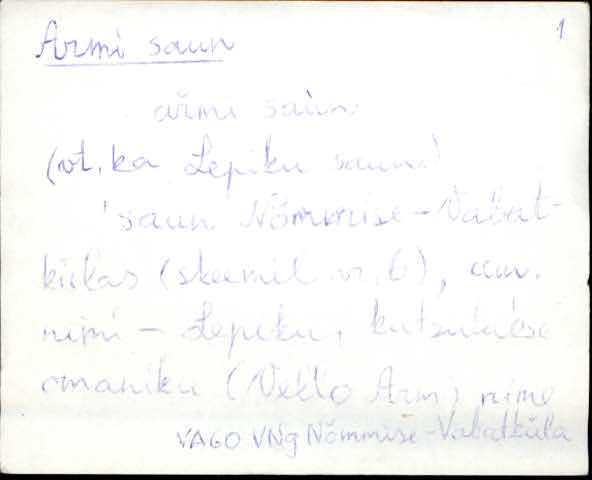 1
Armi saun
armi saun
(vt. ka Lepiku saun)
saun Nõmmise-Vabat-
külas (skeemil nr. 6), am.
nimi - Lepiku, kutsutakse
omaniku (Armi) nime
VAGO VNg Nõmmise-Vabatküla